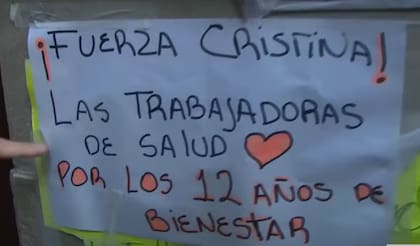 ¡FUERZA CRISTINA!
LAS TRABAJADORAS
DE SALUD
POR LOS 12 AÑOS DE
BIENESTAR